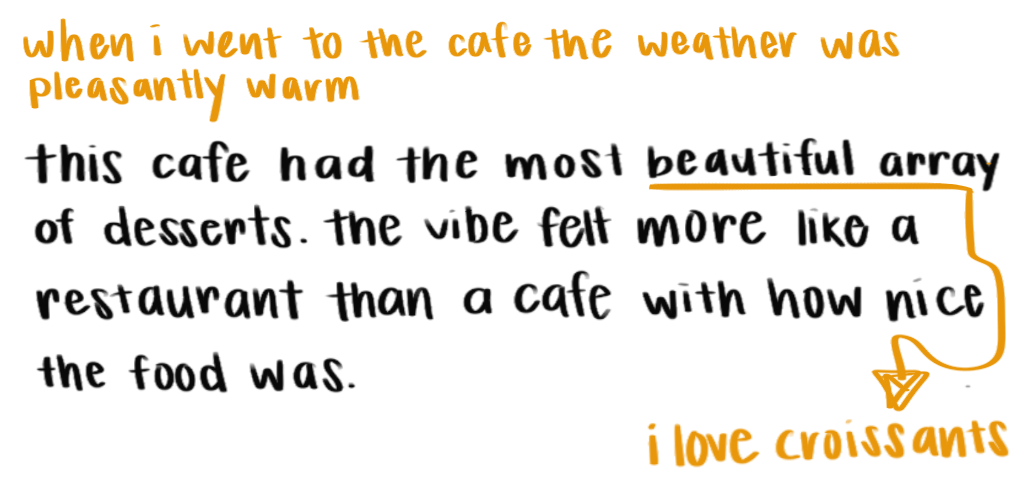 when i went to the cafe the weather was
pleasantly warm
this cafe had the most beautiful array
of desserts. the vibe felt more like a
restaurant than a cafe with how nice
the food was.
i love croissants